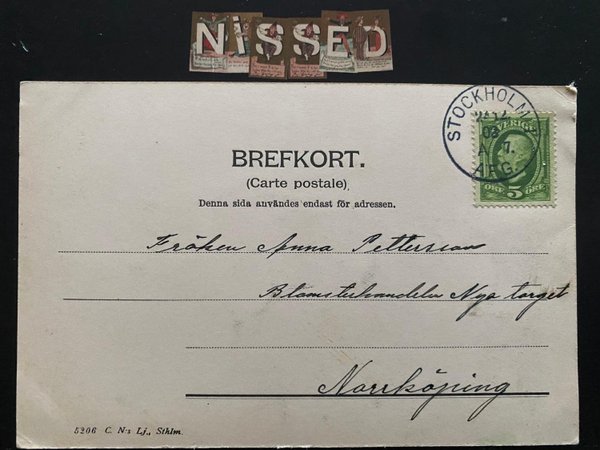 NISSED
BREFKORT.
(Carte postale)
Denna sida användes endast för adressen.
STOCKHOLM
ARG.
SVERIGE
ÖRE 5 ÖRE
Fröken Anna Pettersson
Blomsterhandeln Nya torget
Norrköping
5206 C. N:s Lj., Sthlm.